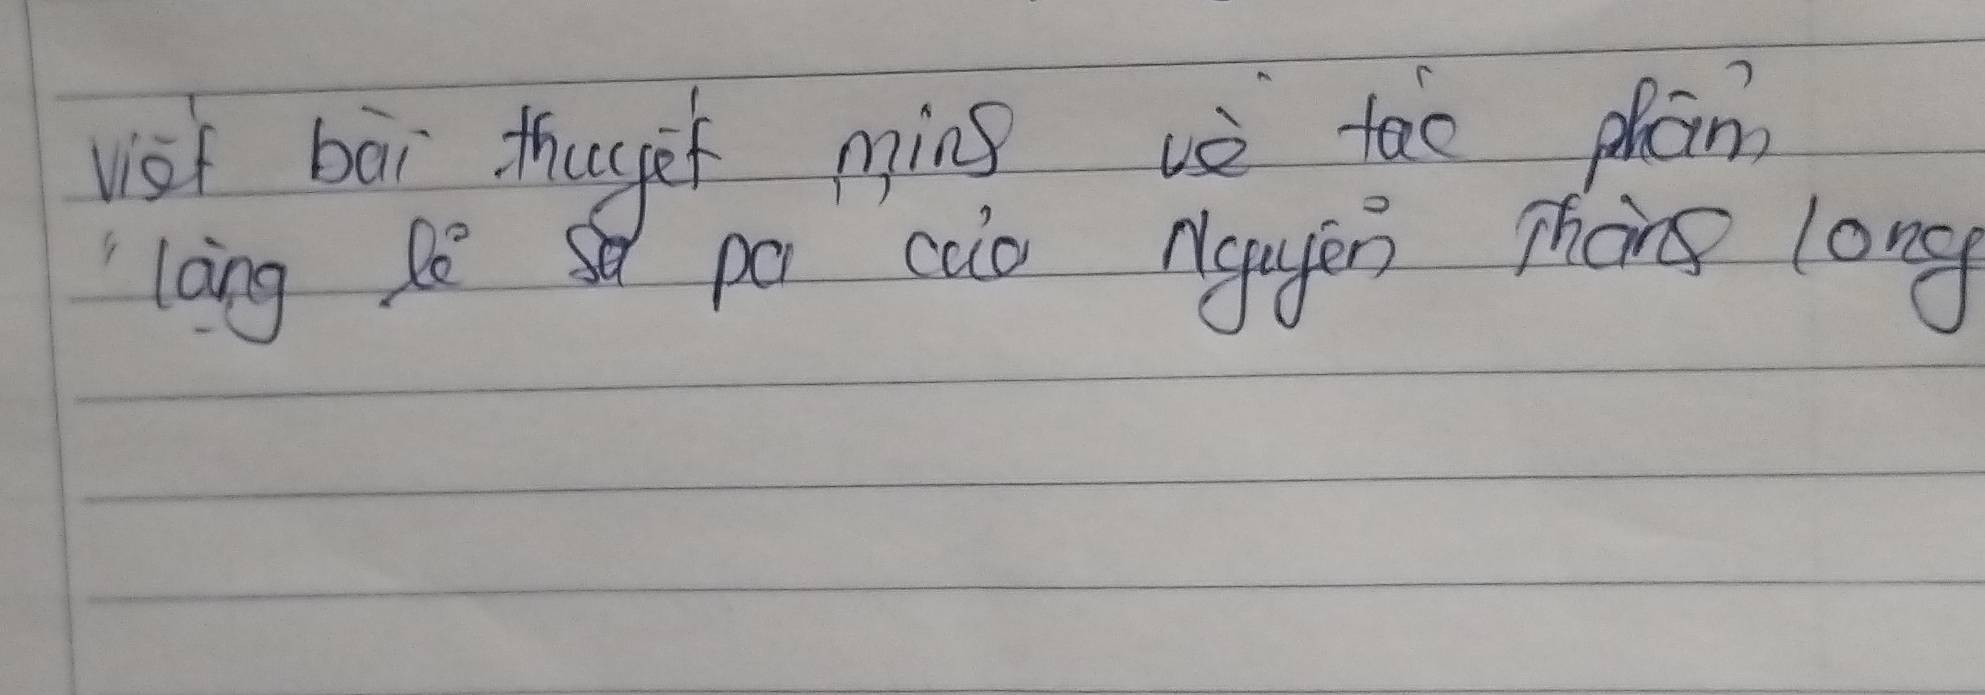 viết bài thuyết minh về tác phẩm
"lặng lẽ sa pa của Nguyễn Thành long